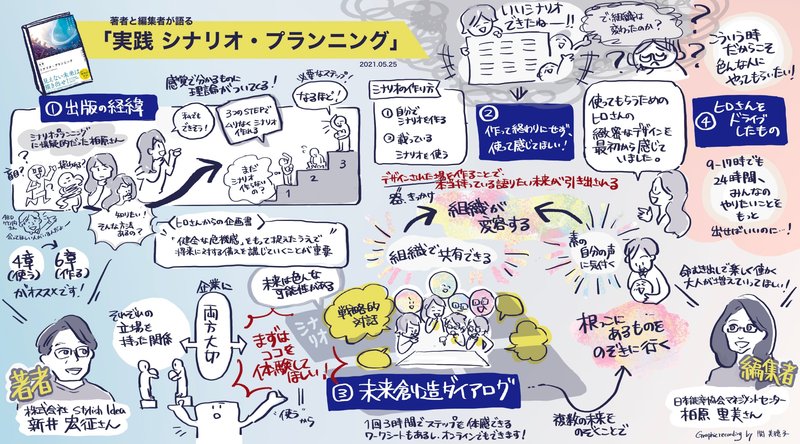 著者と編集者が語る
「実践 シナリオ・プランニング」
2021.05.25
① 出版の経緯
シナリオプランニングに
懐疑的だった柏原さん
感覚で分かるものに
理論がついてる!
私でも
できそう!
3つのSTEPで
ムリなくシナリオ
作れる
必要なステップ!
なるほど!
まだ
シナリオ
作らないの?
1
2
3
知りたい!
そんな方法
あるの?
4章
(使う)
6章
(作る)
がオススメです!
ヒロさんからの企画書
"健全な危機感"をもって捉えたうえで
将来に対する備えを講じていくことが重要
シナリオの作り方
① 自分で
シナリオを作る
② 載っている
シナリオを使う
いいシナリオ
できたねー!!
で、組織は
変わったのか?
②
作って終わりにせず、
使って感じてほしい!
使ってもらうための
ヒロさんの
緻密なデザインを
最初から感じて
いました。
こういう時
だからこそ
色んな人に
やってもらいたい!
④ ヒロさんを
ドライブ
したもの
9-17時でも
24時間、
みんなの
やりたいことを
もっと
出せばいいのに…!
命むき出しで楽しく働く
大人が増えていってほしい!
デザインされた場を作ることで
本当持っている語りたい未来が引き出される
きっかけ
組織が
変容する
組織で共有できる
素の
自分の声
に気付く
根っこに
あるものを
のぞきに行く
複数の未来を
のぞくことで
未来は色んな
可能性がある
シナリオ
戦略的
対話
③ 未来創造ダイアログ
1回3時間でステップを体感できる
ワークシートもあるし、オンラインでもできます!
まずは
ココを
体験して
ほしい!
"使う"から
企業に
両方大切
それぞれの
立場を
持った関係
著者
株式会社 Stylish Idea
新井 宏征さん
編集者
日本能率協会マネジメントセンター
柏原 里美さん